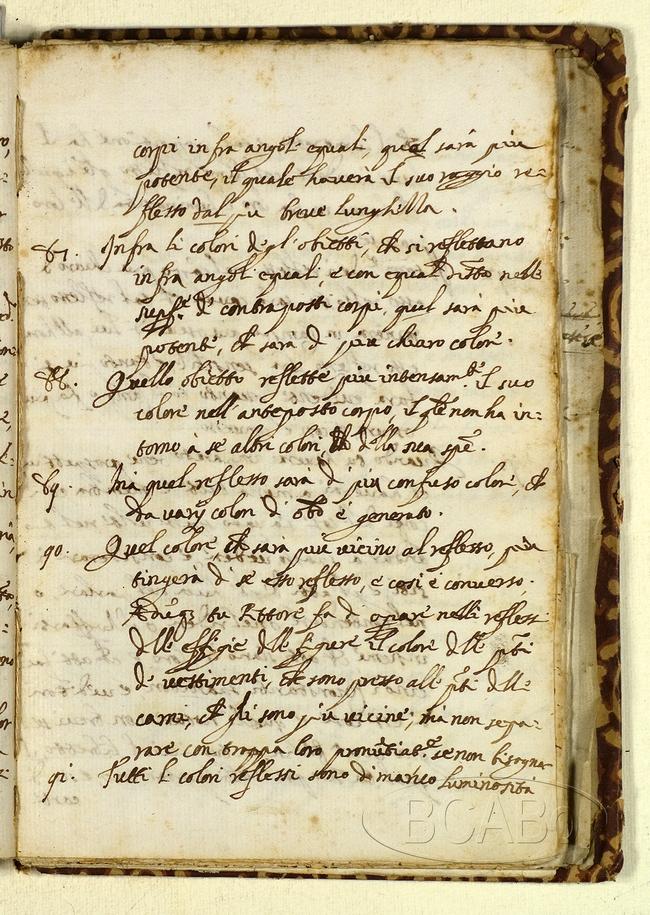 corpi infra angoli equali, qual sarà più
potente, il quale haverà il suo raggio re=
flesso dal più breve lunghella.
87. Infra li colori de gl'obietti, che si reflettano
infra angoli equali, e con equal distto nelle
supfe de contraposti corpi, qual sarà più
potente, che sarà di più chiaro colore.
88. Quello obietto reflette più intensamte il suo
colore nell'anteposto corpo, il qle non ha in=
torno à se altri colori, che della sua spe.
89. Ma quel reflesso sara di più confuso colore, che
da varij colori di obti è generato.
90. Quel colore, che sarà più vicino al reflesso, più
tingerà di se esso reflesso, e così è converso.
Adūqz tu Pittore fa di opare nelli reflessi
delle effigie delle figure il colore delle pti
de vestimenti, che sono presso alle pti delle
carni, che gli sono più vicine; ma non sepa=
rare con troppa loro pronūtiate se non bisogna.
91. Tutti li colori reflessi sono di manco luminosità
BCABo